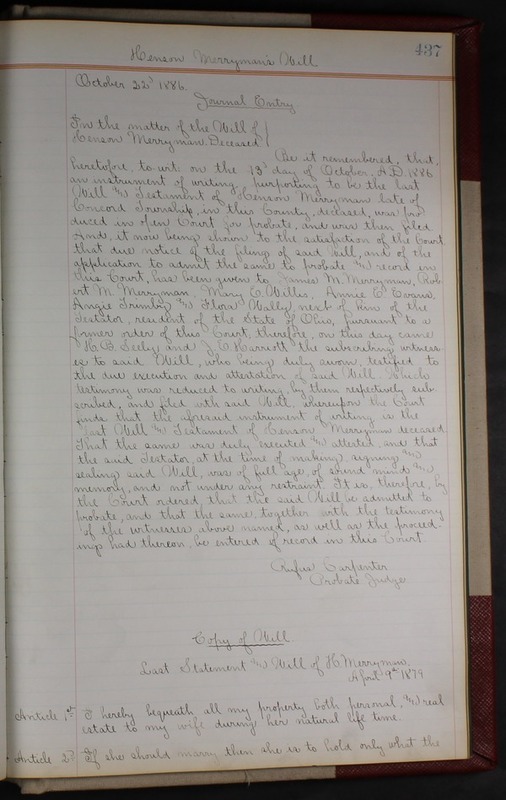 437
Henson Merryman's Will
October 22d 1886.
Journal Entry
In the matter of the Will of
Henson Merryman, Deceased
Be it remembered, that,
heretofore, to wit: on the 13th day of October, A.D. 1886
an instrument of writing, purporting to be the last
Will and Testament of Henson Merryman late of
Concord Township, in this County, deceased, was pro
duced in open Court for probate, and was then filed.
And, it now being shown to the satisfaction of the Court,
that due notice of the filing of said Will, and of the
application to admit the same to probate and record in
this Court, has been given to James M. Merryman, Rob
ert M. Merryman, Mary C. Willis, Annie E. Evans,
Angie Trimby and Flora Wally, next of kin of the
Testator, resident of the State of Ohio, pursuant to a
former order of this Court, therefore, on this day came
H.B. Seely and J.O. Harriott the subscribing witness
es to said Will, who being duly sworn, testified to
the due execution and attestation of said Will, which
testimony was reduced to writing, by them respectively sub
scribed, and filed with said Will, whereupon the Court
finds that the aforesaid instrument of writing is the
last Will and Testament of Henson Merryman deceased.
That the same was duly executed and attested, and that
the said Testator, at the time of making, signing and
sealing said Will, was of full age, of sound mind and
memory, and not under any restraint. It is, therefore, by
the Court ordered, that the said Will be admitted to
probate, and that the same, together with the testimony
of the witnesses above named, as well as the proceed-
ings had thereon, be entered of record in this Court.
Rufus Carpenter
Probate Judge
Copy of Will
Last Statement and Will of H Merryman.
April 9th 1879
Article 1st I hereby bequeath all my property both personal, and real
estate to my wife during her natural life time.
Article 2d If she should marry then she is to hold only what the